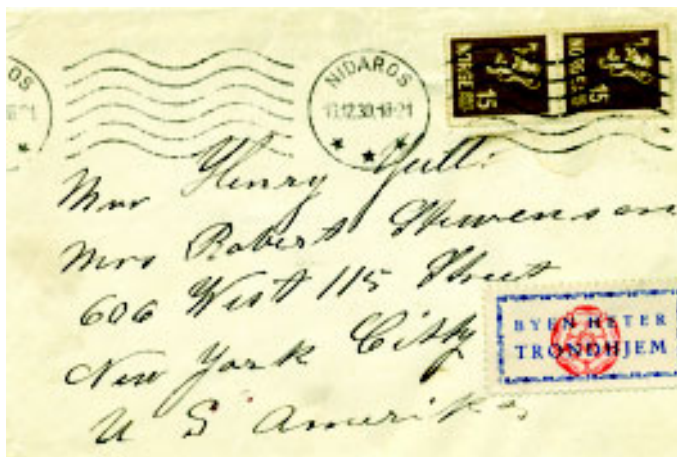 NIDAROS
12.30.18-21
NORGE
15
NORGE
15
Henry
Mrs Robert Stewenson
606 West 115 Street
New York Citty
U S Amerika
BYEN HETER
TRONDHJEM